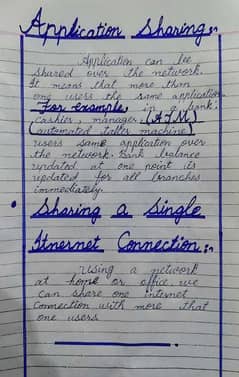 Application Sharing:-
Application can be
shared over the network.
It means that more than
one users the same application
For example, in a bank:
cashier, manager, (ATM)
(automated taller machine)
users same application over
the network. Bank balance
updated at one point is
updated for all branches
immediately.
• Sharing a Single
Itnernet Connection:-
Using a network
at home or office we
can share one internet
connection with more that
one users